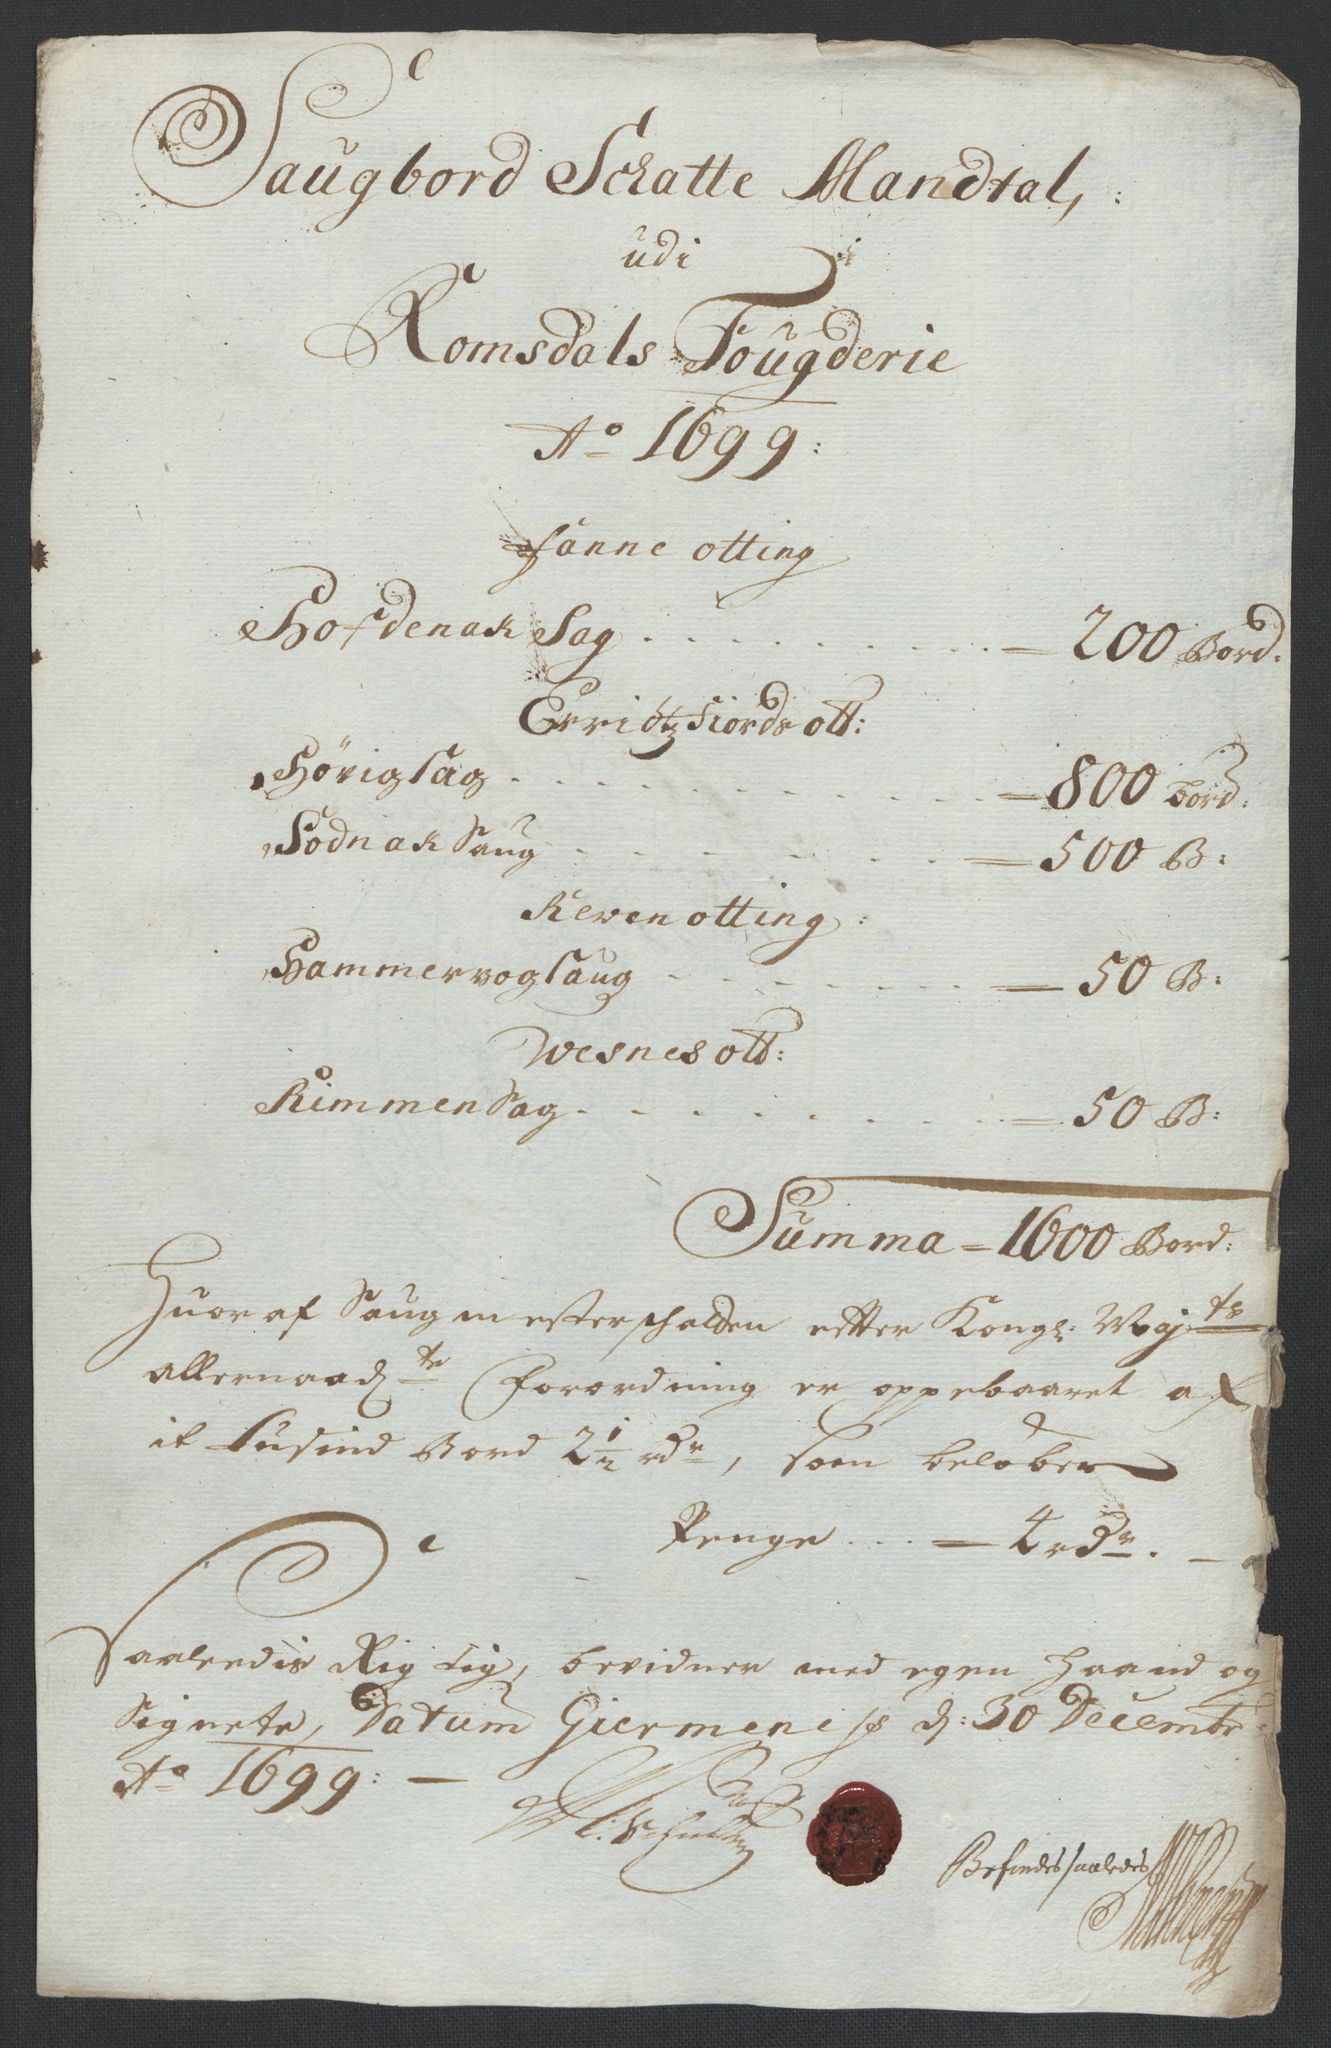 Saugbord Schatte Mandtal,
udi
Romsdals Fougderie
Ao 1699:
Fanne otting
Hofdenak Sag . . . . . . . . . = 200 Bord:
Erridtzfiords ott:
Hövig Sag . . . . . . . . . = 800 bord:
Sodnak Saug . . . . . . . = 500 B:
Reven otting:
Hammervog Saug . . . . . . . = 50 B:
Wesnes ott:
Rimmen Sag . . . . . . . = 50 B:
Summa = 1600 Bord:
Huor af Saugmesterschatten efter Kongl: May:ts
allernaad:te Forordning er oppebaaret af
it tusind Bord 2 1/2 rdr, som beløber
Penge . . . = 4 rdr. —
Saaledis Rigtig, bevidner med egen haand og
Signete, Datum Giermenes d: 30 Decembr:
Ao 1699: —
Befindes saaledes